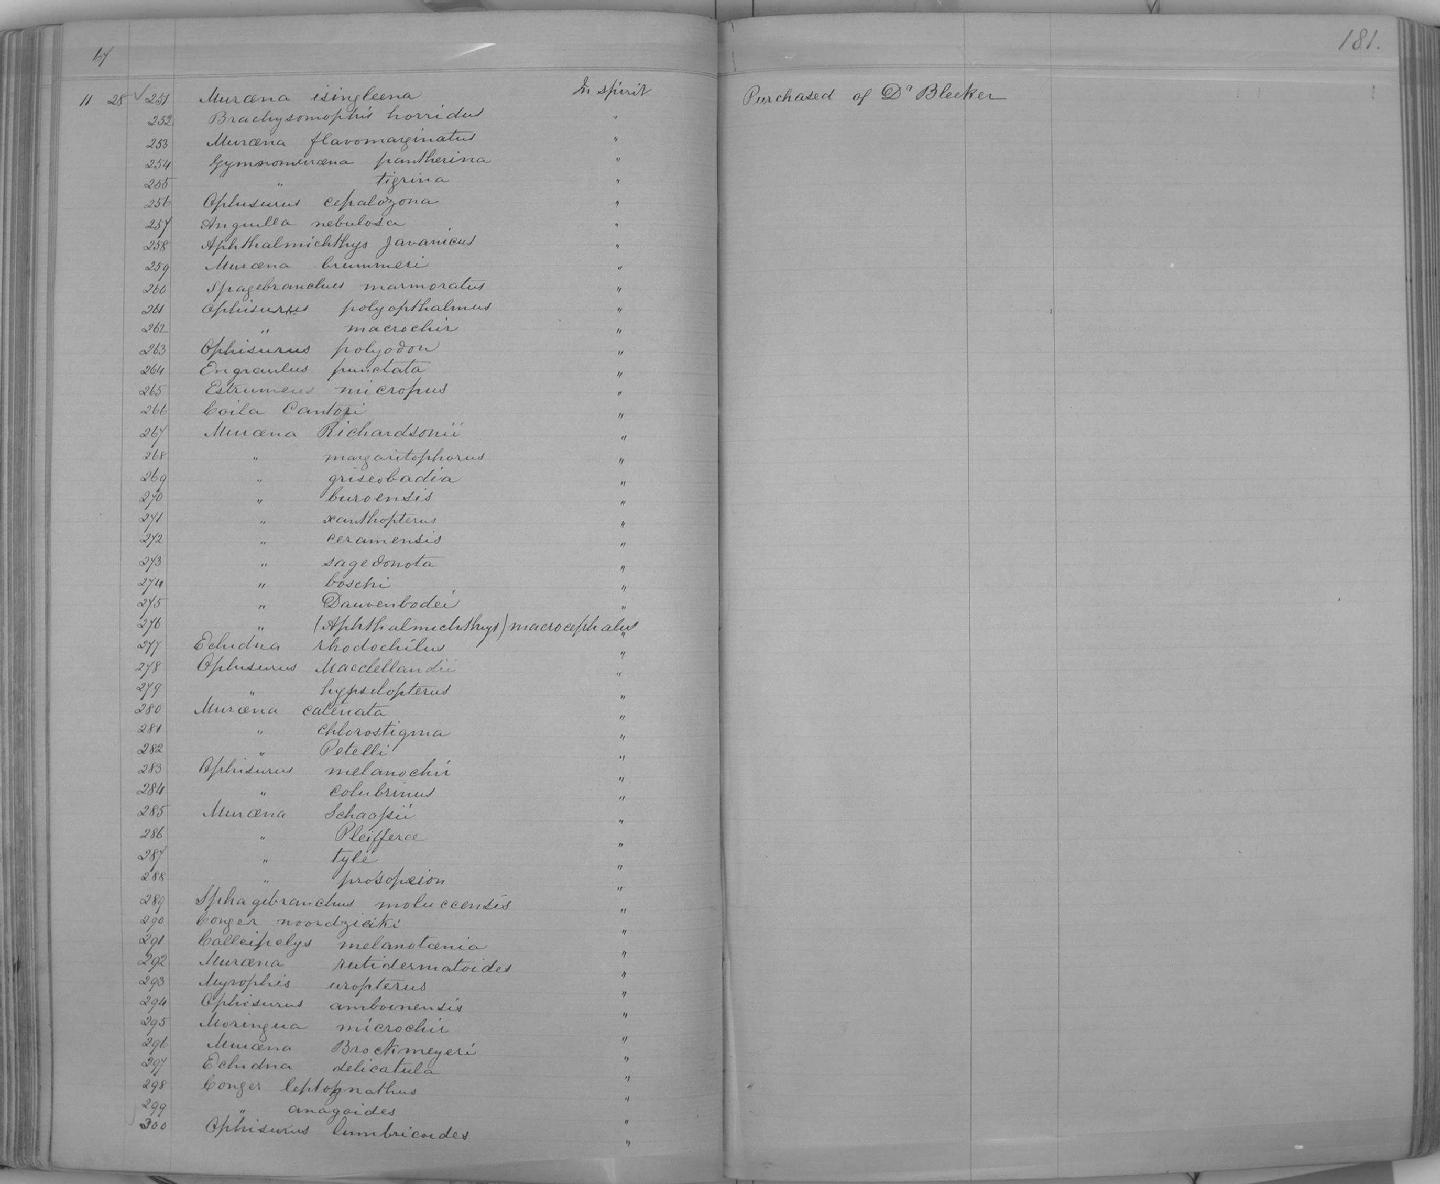 181.
11 28 251 Muræna isingleena In spirit Purchased of Dr Bleeker
252 Brachysomophis horridus "
253 Muræna flavomarginatus "
254 Gymnomuræna pantherina "
255 " tigrina "
256 Ophisurus cepalozona "
257 Anguilla nebulosa "
258 Aphthalmichthys Javanicus "
259 Muræna brummeri "
260 Spagebranchus marmoratus "
261 Ophisurus polyopthalmus "
262 " macrochir "
263 Ophisurus polyodon "
264 Engraulus punctata "
265 Estrumeus micropus "
266 Coila Cantori "
267 Muræna Richardsonii "
268 " margaritophorus "
269 " griseobadia "
270 " buroensis "
271 " xanthopterus "
272 " ceramensis "
273 " sagedonota "
274 " boschi "
275 " Dauvenbodei "
276 " (Aphthalmichthys) macrocephalus "
277 Echidna rhodochilus "
278 Ophisurus Macclellandii "
279 " hypselopterus "
280 Muræna catenata "
281 " chlorostigma "
282 " Petelli "
283 Ophisurus melanochir "
284 " colubrinus "
285 Muræna Schaapii "
286 " Pleifferæ "
287 " tyle "
288 " prosopeion "
289 Sphagibranchus moluccensis "
290 Conger noordzieki "
291 Calleipelys melanotænia "
292 Muræna rutidermatoides "
293 Myrophis uropterus "
294 Ophisurus amboinensis "
295 Moringua microchir "
296 Muræna Brockmeyeri "
297 Echidna delicatula "
298 Conger leptognathus "
299 " anagoides "
300 Ophisurus lumbricoides "